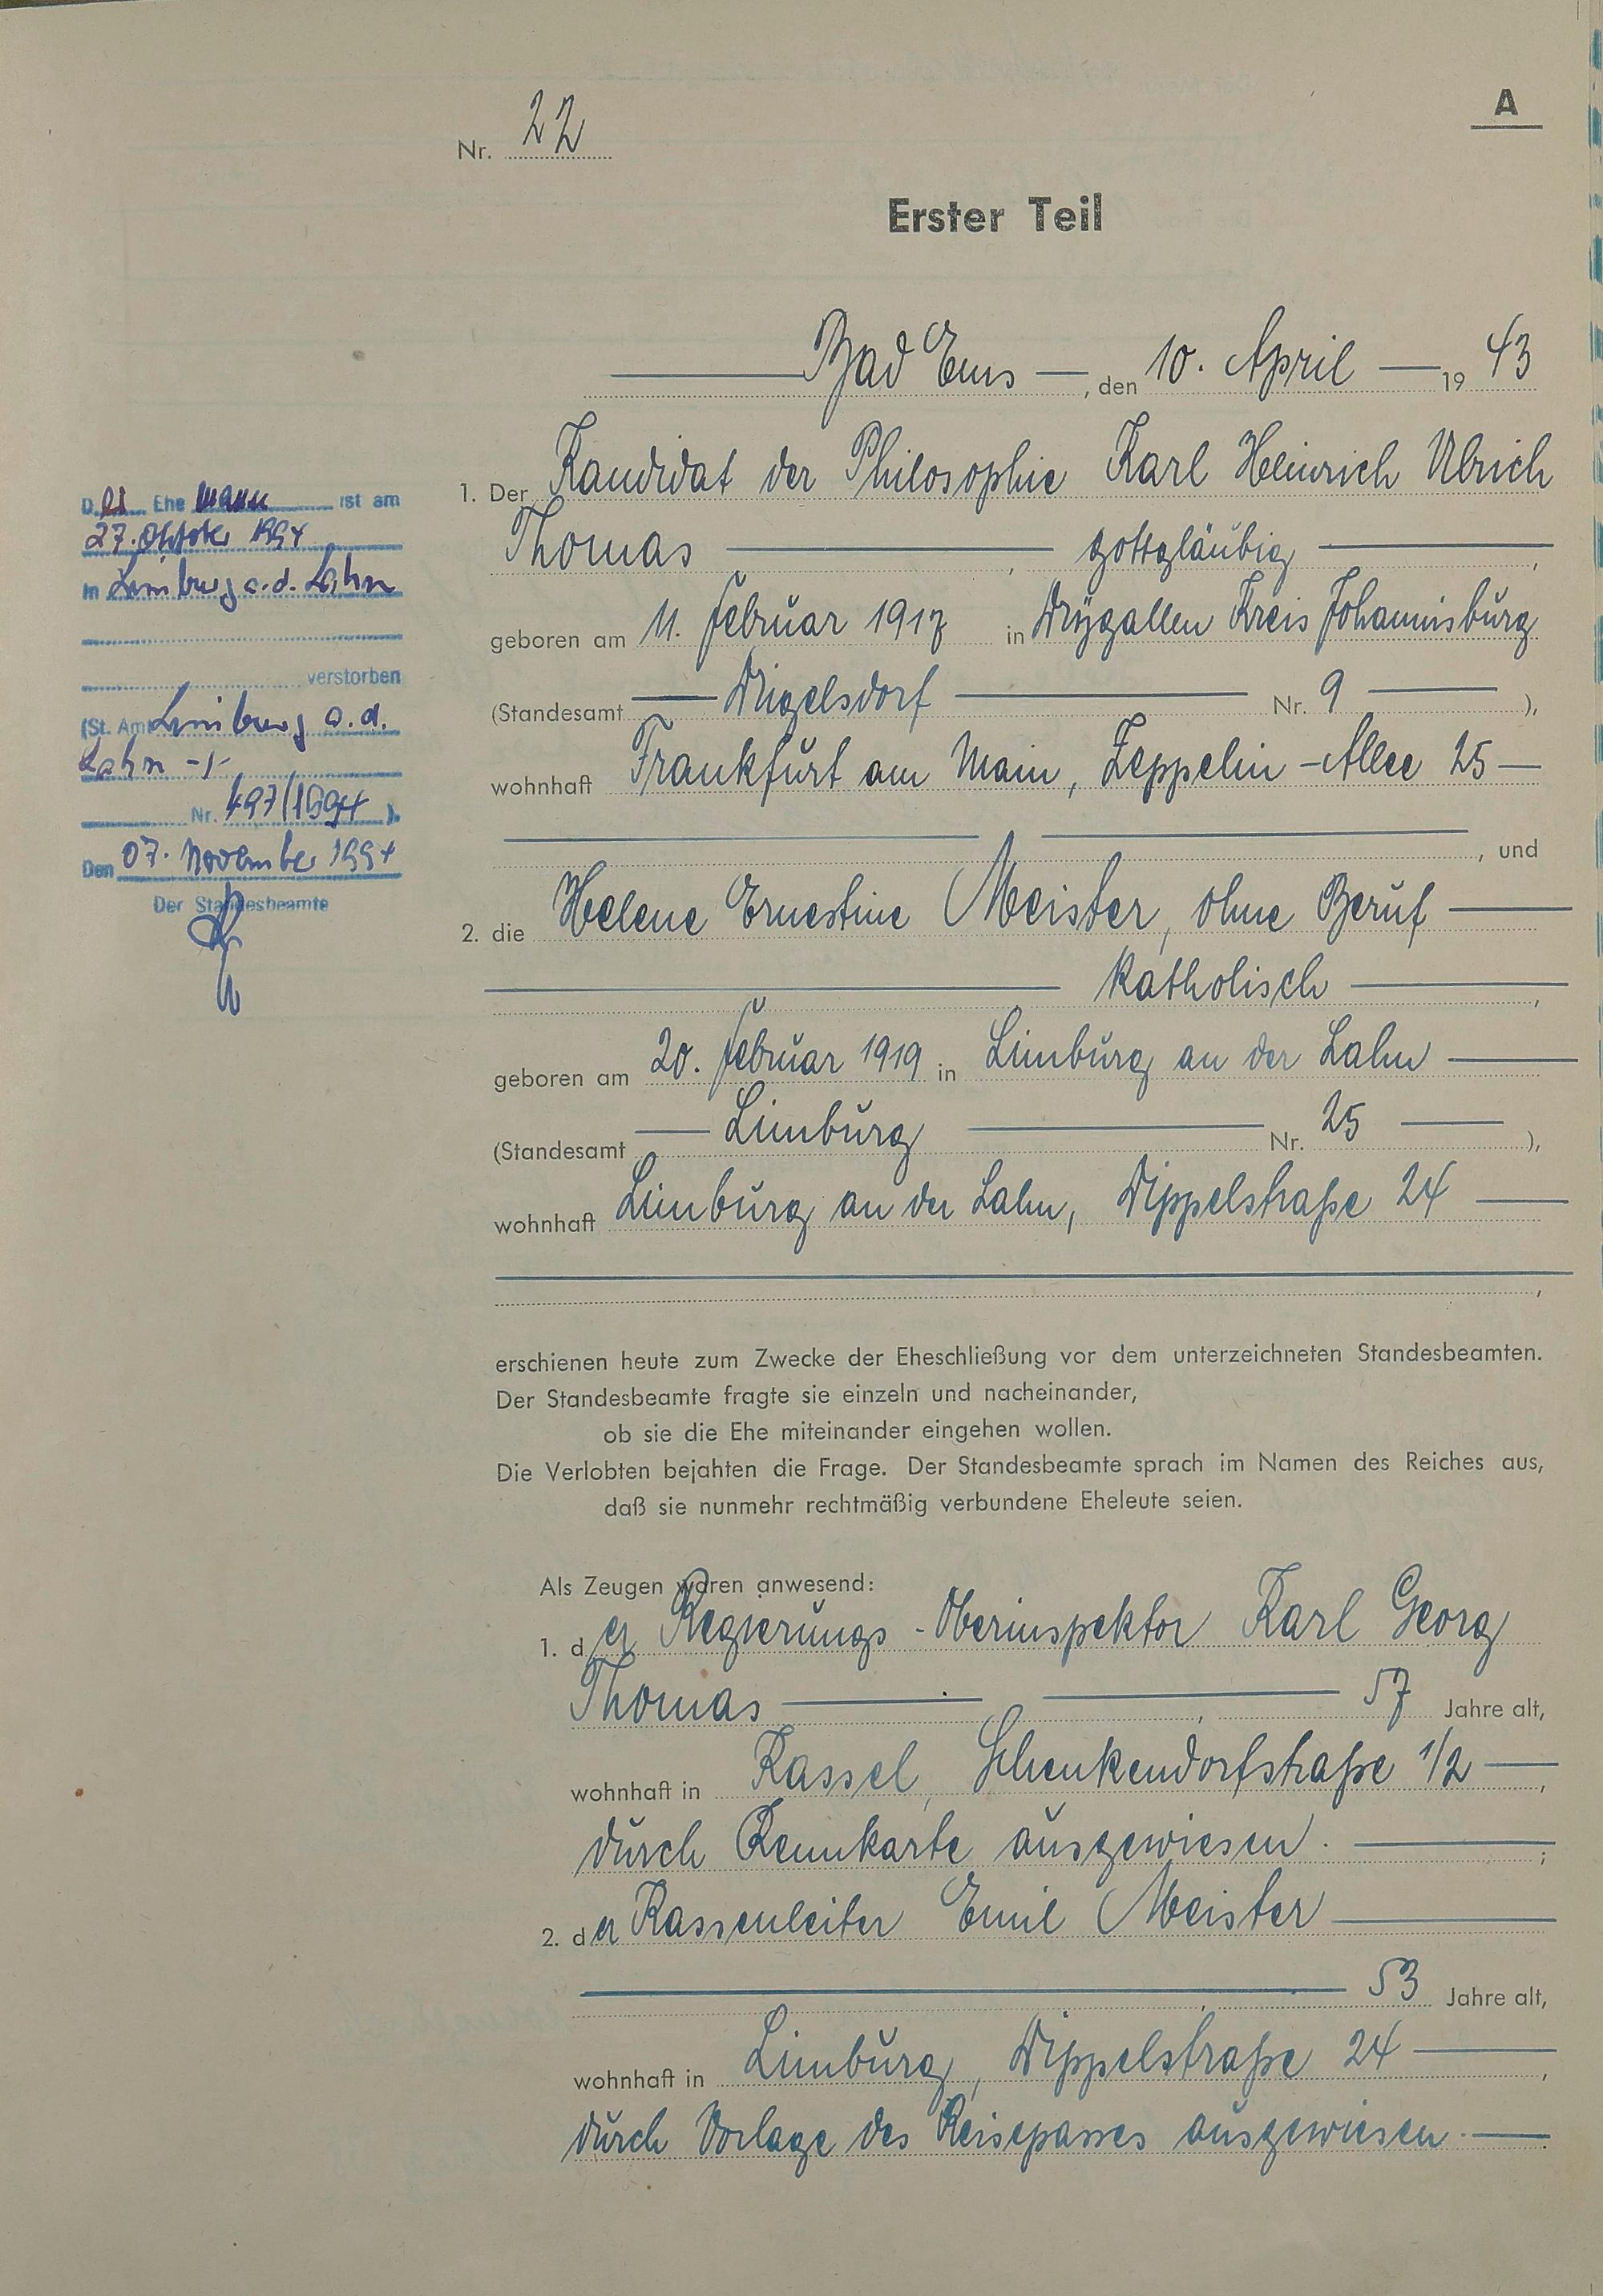 A
Nr. 22
Erster Teil
Bad Ems, den 10. April 1943
1. Der Kandidat der Philosophie Karl Heinrich Ulrich
Thomas, gottgläubig,
geboren am 11. Februar 1917 in Drygallen Kreis Johannisburg
(Standesamt Drigelsdorf Nr. 9),
wohnhaft Frankfurt am Main, Zeppelin-Allee 25
, und
2. die Helene Ernestine Meister, ohne Beruf
katholisch,
geboren am 20. Februar 1919 in Limburg an der Lahn
(Standesamt Limburg Nr. 25),
wohnhaft Limburg an der Lahn, Dippelstraße 24
,
erschienen heute zum Zwecke der Eheschließung vor dem unterzeichneten Standesbeamten.
Der Standesbeamte fragte sie einzeln und nacheinander,
ob sie die Ehe miteinander eingehen wollen.
Die Verlobten bejahten die Frage. Der Standesbeamte sprach im Namen des Reiches aus,
daß sie nunmehr rechtmäßig verbundene Eheleute seien.
Als Zeugen waren anwesend:
1. der Regierungs-Oberinspektor Karl Georg
Thomas, 57 Jahre alt,
wohnhaft in Kassel, Schenkendorfstraße 1/2,
durch Kennkarte ausgewiesen.;
2. der Kassenleiter Emil Meister
, 53 Jahre alt,
wohnhaft in Limburg, Dippelstraße 24,
durch Vorlage des Reisepasses ausgewiesen.
Der Ehemann ist am
27. Oktober 1994
in Limburg a. d. Lahn
verstorben
(St. Amt Limburg a. d.
Lahn -1-
Nr. 497/1994).
Den 07. November 1994
Der Standesbeamte